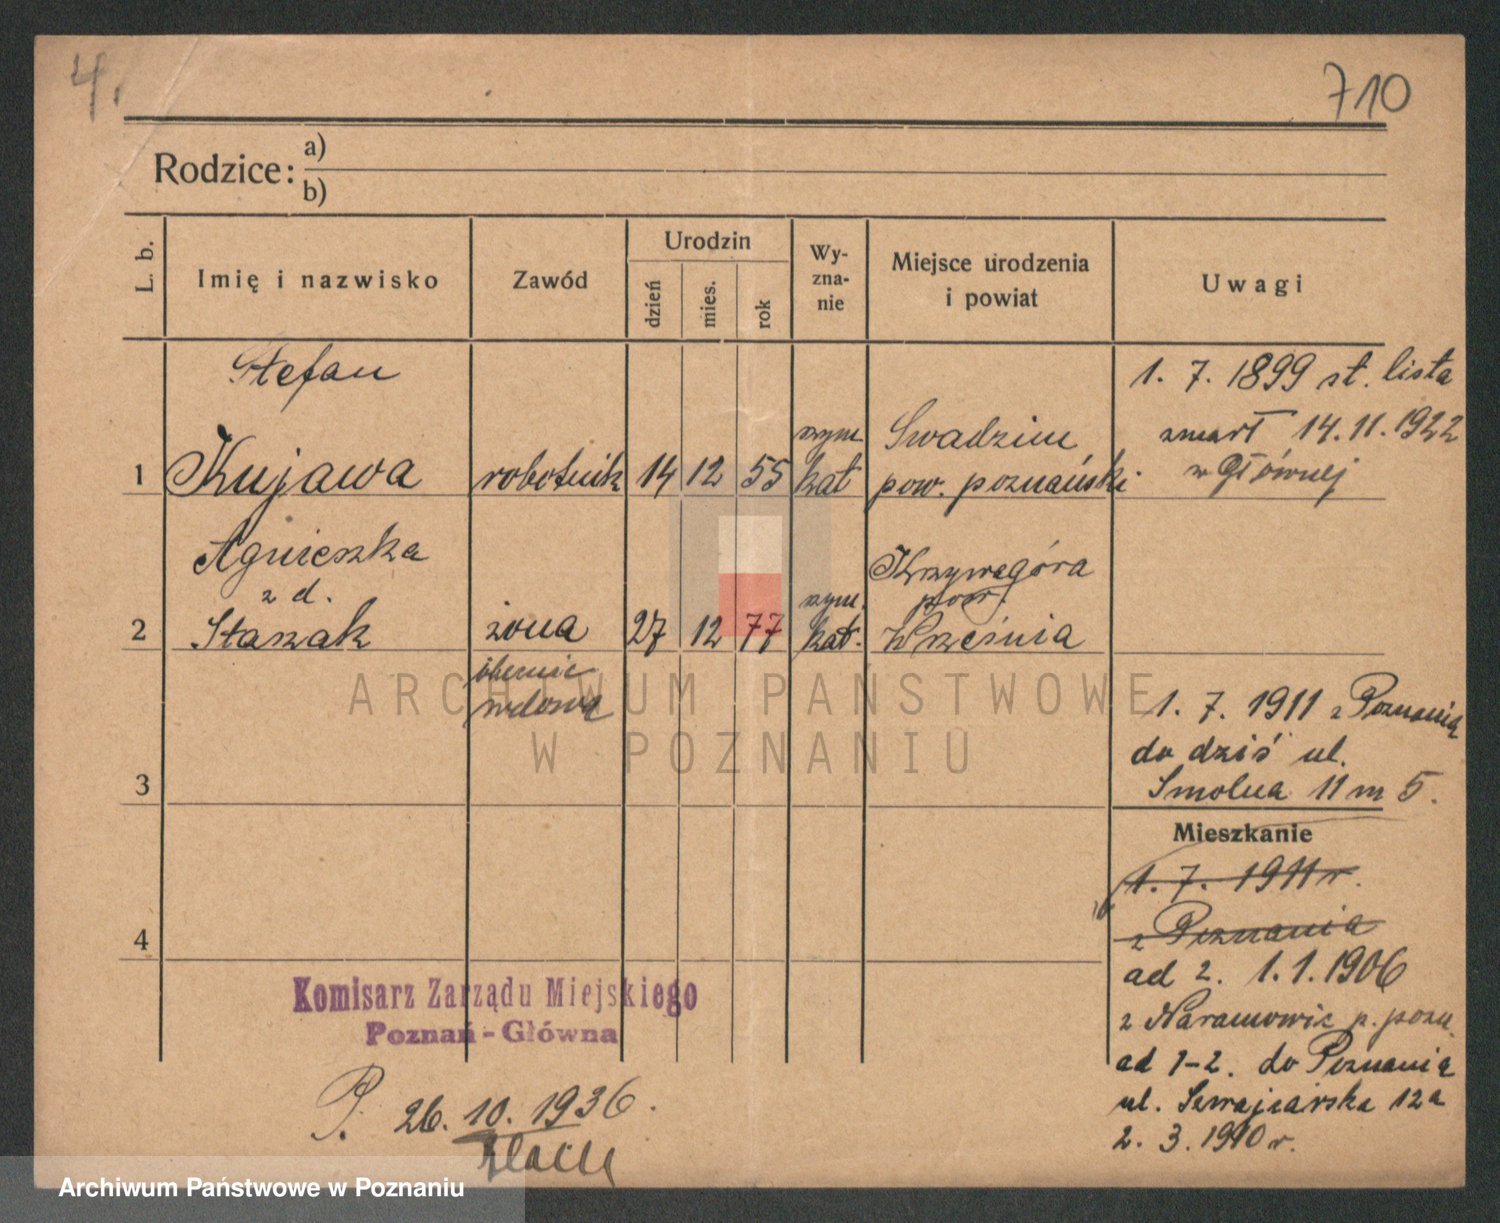 4.
710
Rodzice: a)
b)
L. b.
Imię i nazwisko
Zawód
Urodzin
dzień
mies.
rok
Wy-
zna-
nie
Miejsce urodzenia
i powiat
Uwagi
Stefan
1 Kujawa robotnik 14 12 55 rzym kat
Swadzim
pow. poznański
1. 7. 1899 st. lista
zmarł 14.11.1922
w Głównej
Agnieszka
z d.
2 Staszak żona 27 12 77 rzym. kat.
obecnie
wdową
Krzywagóra
pow.
Września
3
1. 7. 1911 z Poznania
do dziś ul.
Smolna 11 m 5.
Mieszkanie
1. 7. 1911 r.
z Poznania
4
ad 2. 1.1.1906
z Naramowic p. pozn.
ad 1-2. do Poznania
ul. 12a
2. 3. 1910 r.
Komisarz Zarządu Miejskiego
Poznań-Główna
P. 26. 10. 1936.
ARCHIWUM PAŃSTWOWE
W POZNANIU
Archiwum Państwowe w Poznaniu